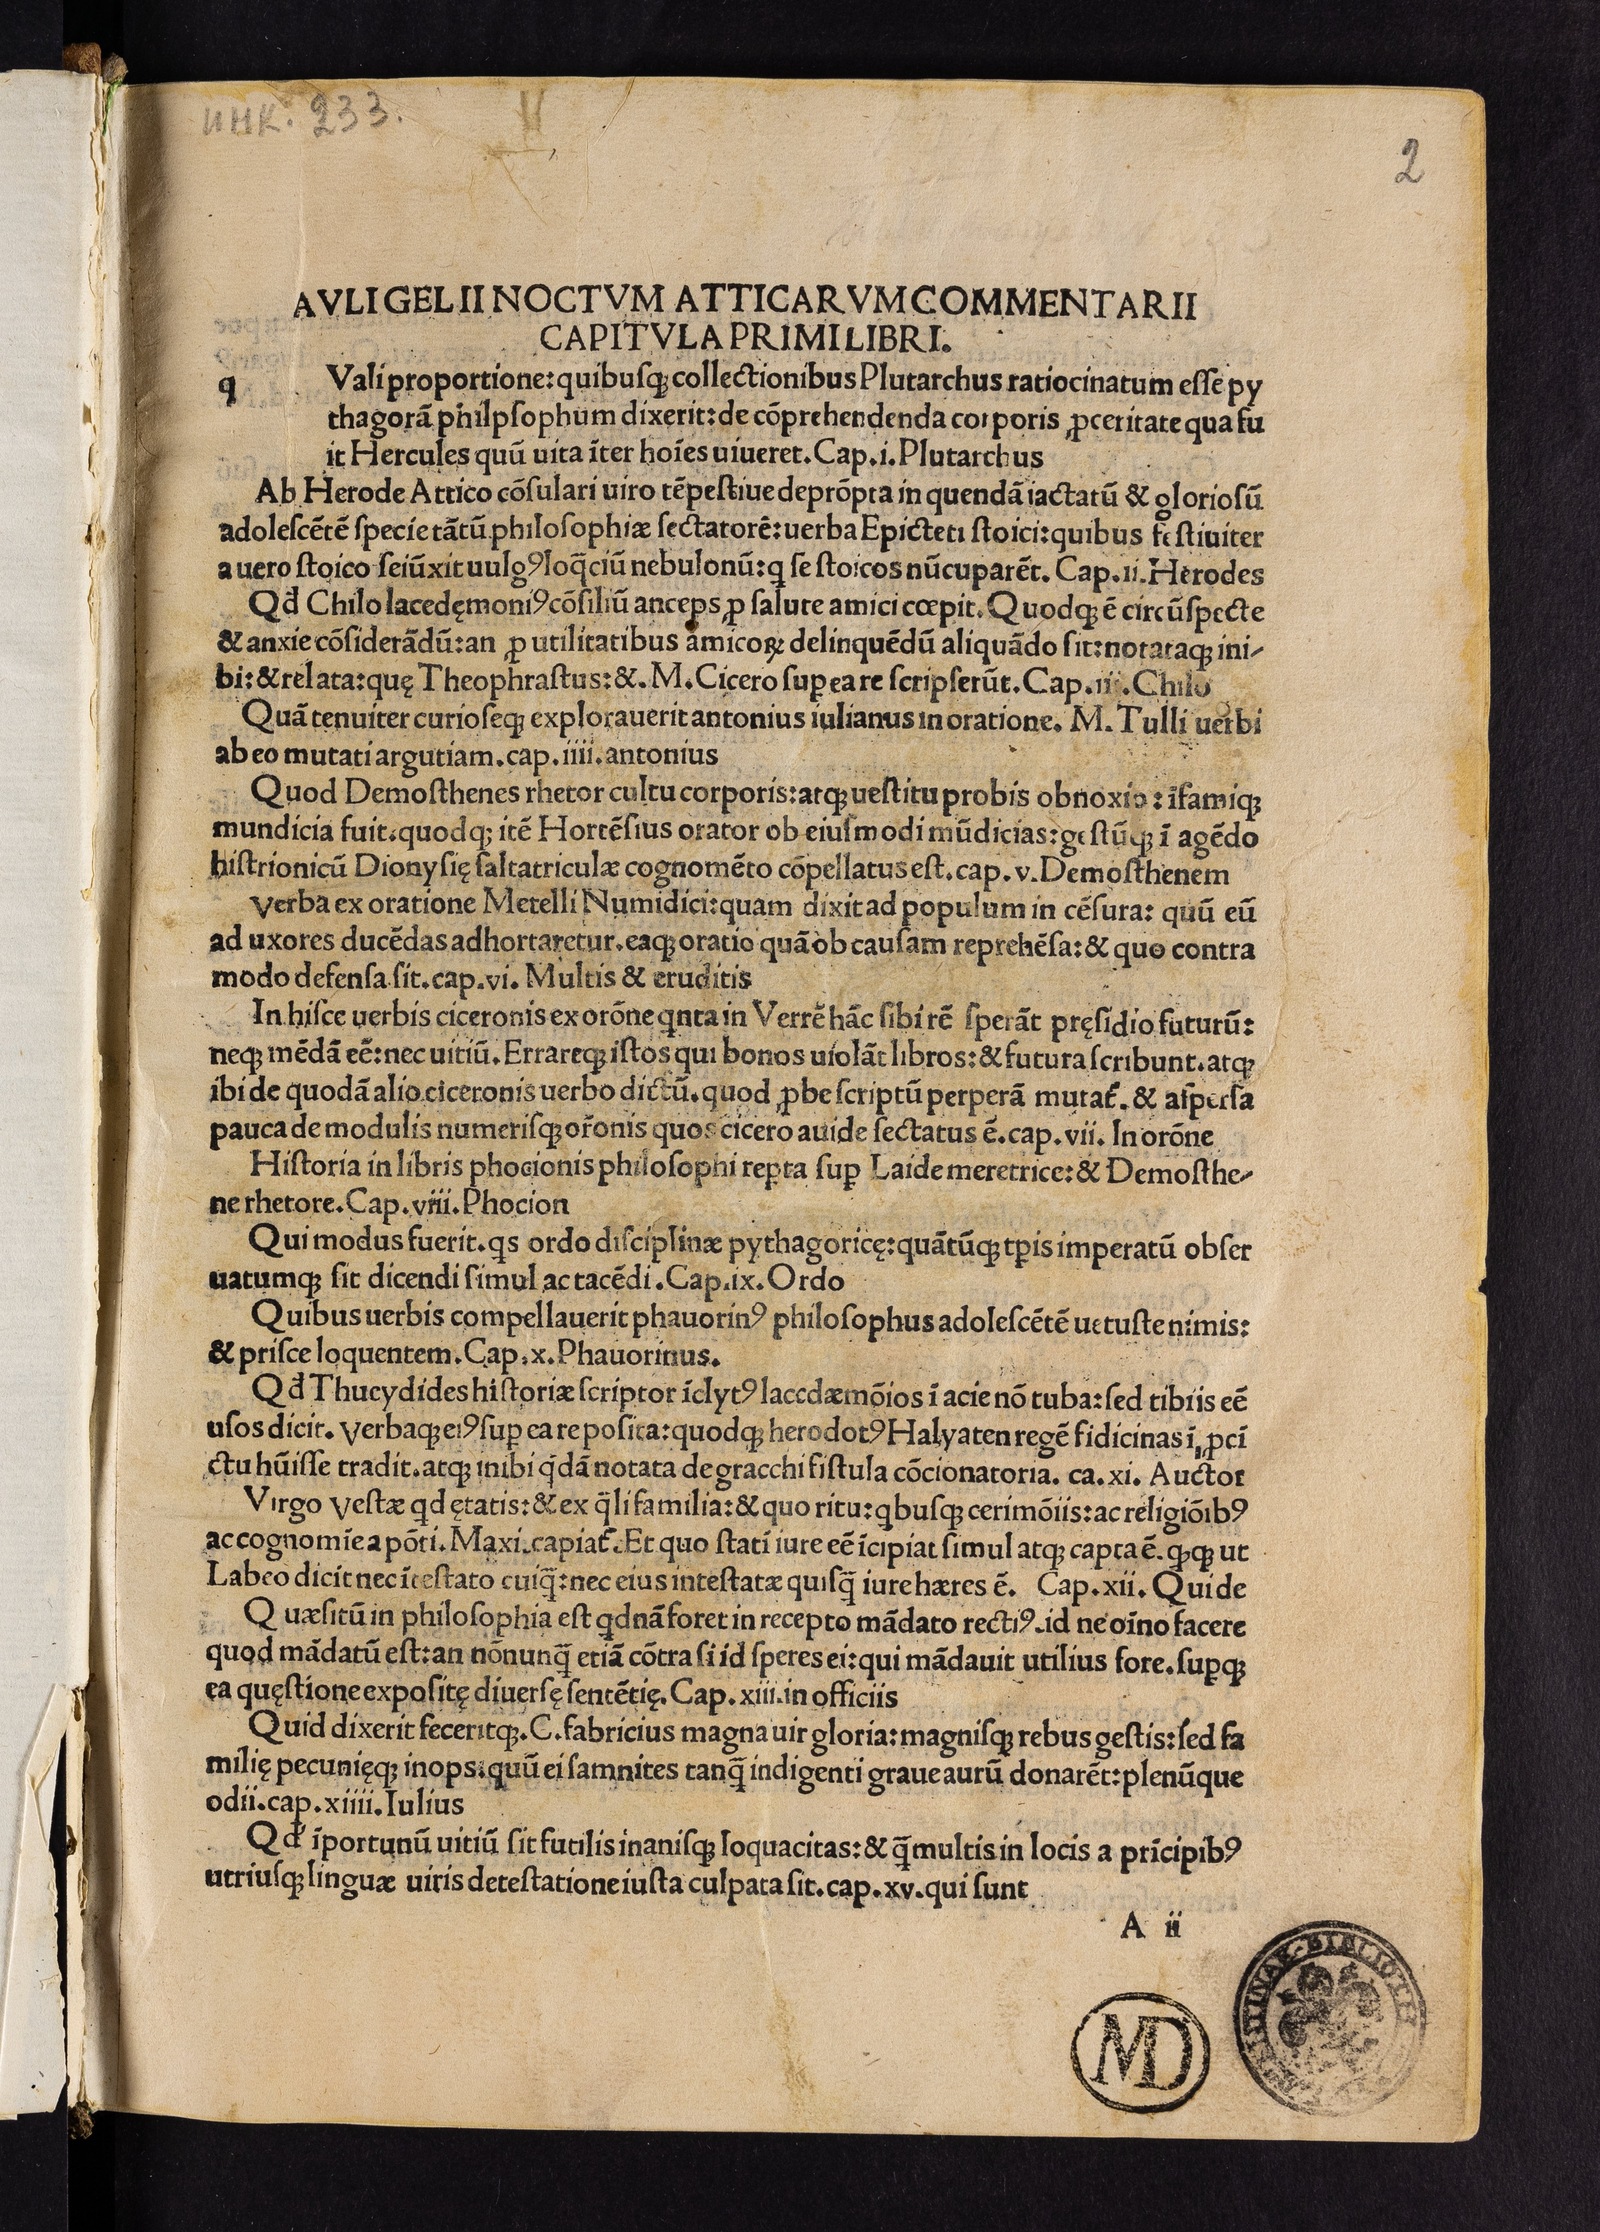 инк. 233.
2
AVLI GELII NOCTVM ATTICARVM COMMENTARII
CAPITVLA PRIMI LIBRI.
q Vali proportione: quibusq; collectionibus Plutarchus ratiocinatum esse py
thagorā philpsophum dixerit: de cōprehendenda corporis ꝓceritate qua fu
it Hercules quū uita īter hoīes uiueret. Cap. i. Plutarchus
Ab Herode Attico cōſulari uiro tēpeſtiue deprōpta in quendā iactatū & glorioſū
adoleſcētē ſpecie tātū philoſophiæ ſectatorē: uerba Epicteti ſtoici: quibus feſtiuiter
a uero ſtoico ſeiūxit uulgꝰ loq̄ciū nebulonū: q ſe ſtoicos nūcuparēt. Cap. ii. Herodes
Qđ Chilo lacedęmoniꝰ cōſiliū anceps ꝓ ſalute amici cœpit. Quodq; ē circūſpecte
& anxie cōſiderādū: an ꝓ utilitatibus amicoꝝ delinquēdū aliquādo ſit: notataq; ini-
bi: & relata: quę Theophraſtus: &. M. Cicero ſuꝑ ea re ſcripſerūt. Cap. iii. Chilo
Quā tenuiter curioſeq; explorauerit antonius iulianus in oratione. M. Tulli uerbi
ab eo mutati argutiam. cap. iiii. antonius
Quod Demoſthenes rhetor cultu corporis: atq; ueſtitu probis obnoxio: īfamiq;
mundicia fuit. quodq; itē Hortēſius orator ob eiuſmodi mūdicias: geſtūq; ī agēdo
hiſtrionicū Dionyſię ſaltatriculæ cognomēto cōpellatus eſt. cap. v. Demoſthenem
Verba ex oratione Metelli Numidici: quam dixit ad populum in cēſura: quū eū
ad uxores ducēdas adhortaretur. eaq; oratio quā ob cauſam reprehēſa: & quo contra
modo defenſa ſit. cap. vi. Multis & eruditis
In hiſce uerbis ciceronis ex orōne qnta in Verrē hāc ſibi rē ſperāt pręſidio futurū:
neq; mēdā eē: nec uitiū. Errareq; iſtos qui bonos uiolāt libros: & futura ſcribunt. atq;
ibi de quodā alio ciceronis uerbo dictū. quod ꝓbe ſcriptū perperā mutať. & aſperſa
pauca de modulis numeriſq; orōnis quos cicero auide ſectatus ē. cap. vii. In orōne
Hiſtoria in libris phocionis philoſophi reꝑta ſuꝑ Laide meretrice: & Demoſthe-
ne rhetore. Cap. viii. Phocion
Qui modus fuerit. qs ordo diſciplinæ pythagoricę: quātūq; tꝑis imperatū obſer
uatumq; ſit dicendi ſimul ac tacēdi. Cap. ix. Ordo
Quibus uerbis compellauerit phauorinꝰ philoſophus adoleſcētē uetuſte nimis:
& priſce loquentem. Cap. x. Phauorinus.
Qđ Thucydides hiſtoriæ ſcriptor īclytꝰ lacedæmōios ī acie nō tuba: ſed tibiis eē
uſos dicit. Verbaq; eiꝰ ſuꝑ ea re poſita: quodq; herodotꝰ Halyaten regē fidicinas ī ꝓcī
ctu hūiſſe tradit. atq; inibi q̄dā notata de gracchi fiſtula cōcionatoria. ca. xi. Auctor
Virgo Veſtæ qd ętatis: & ex q̄li familia: & quo ritu: qbuſq; cerimōiis: ac religiōibꝰ
ac cognomīe a pōti. Maxi. capiať. Et quo ſtatī iure eē īcipiat ſimul atq; capta ē. qq; ut
Labeo dicit nec īteſtato cuiq̄: nec eius inteſtatæ quiſq̄ iure hæres ē. Cap. xii. Qui de
Quæſitū in philoſophia eſt qdnā foret in recepto mādato rectiꝰ. id ne oīno facere
quod mādatū eſt: an nōnunq̄ etiā cōtra ſi id ſperes ei: qui mādauit utilius fore. ſuꝑq;
ea quęſtione expoſitę diuerſę ſentētię. Cap. xiii. in officiis
Quid dixerit feceritq;. C. fabricius magna uir gloria: magniſq; rebus geſtis: ſed fa
milię pecunięq; inops: quū ei ſamnites tanq̄ indigenti graue aurū donarēt: plenūque
odii. cap. xiiii. Iulius
Qđ īportunū uitiū ſit futilis inaniſq; loquacitas: & q̄ multis in locis a prīcipibꝰ
utriuſq; linguæ uiris deteſtatione iuſta culpata ſit. cap. xv. qui ſunt
A ii
MD